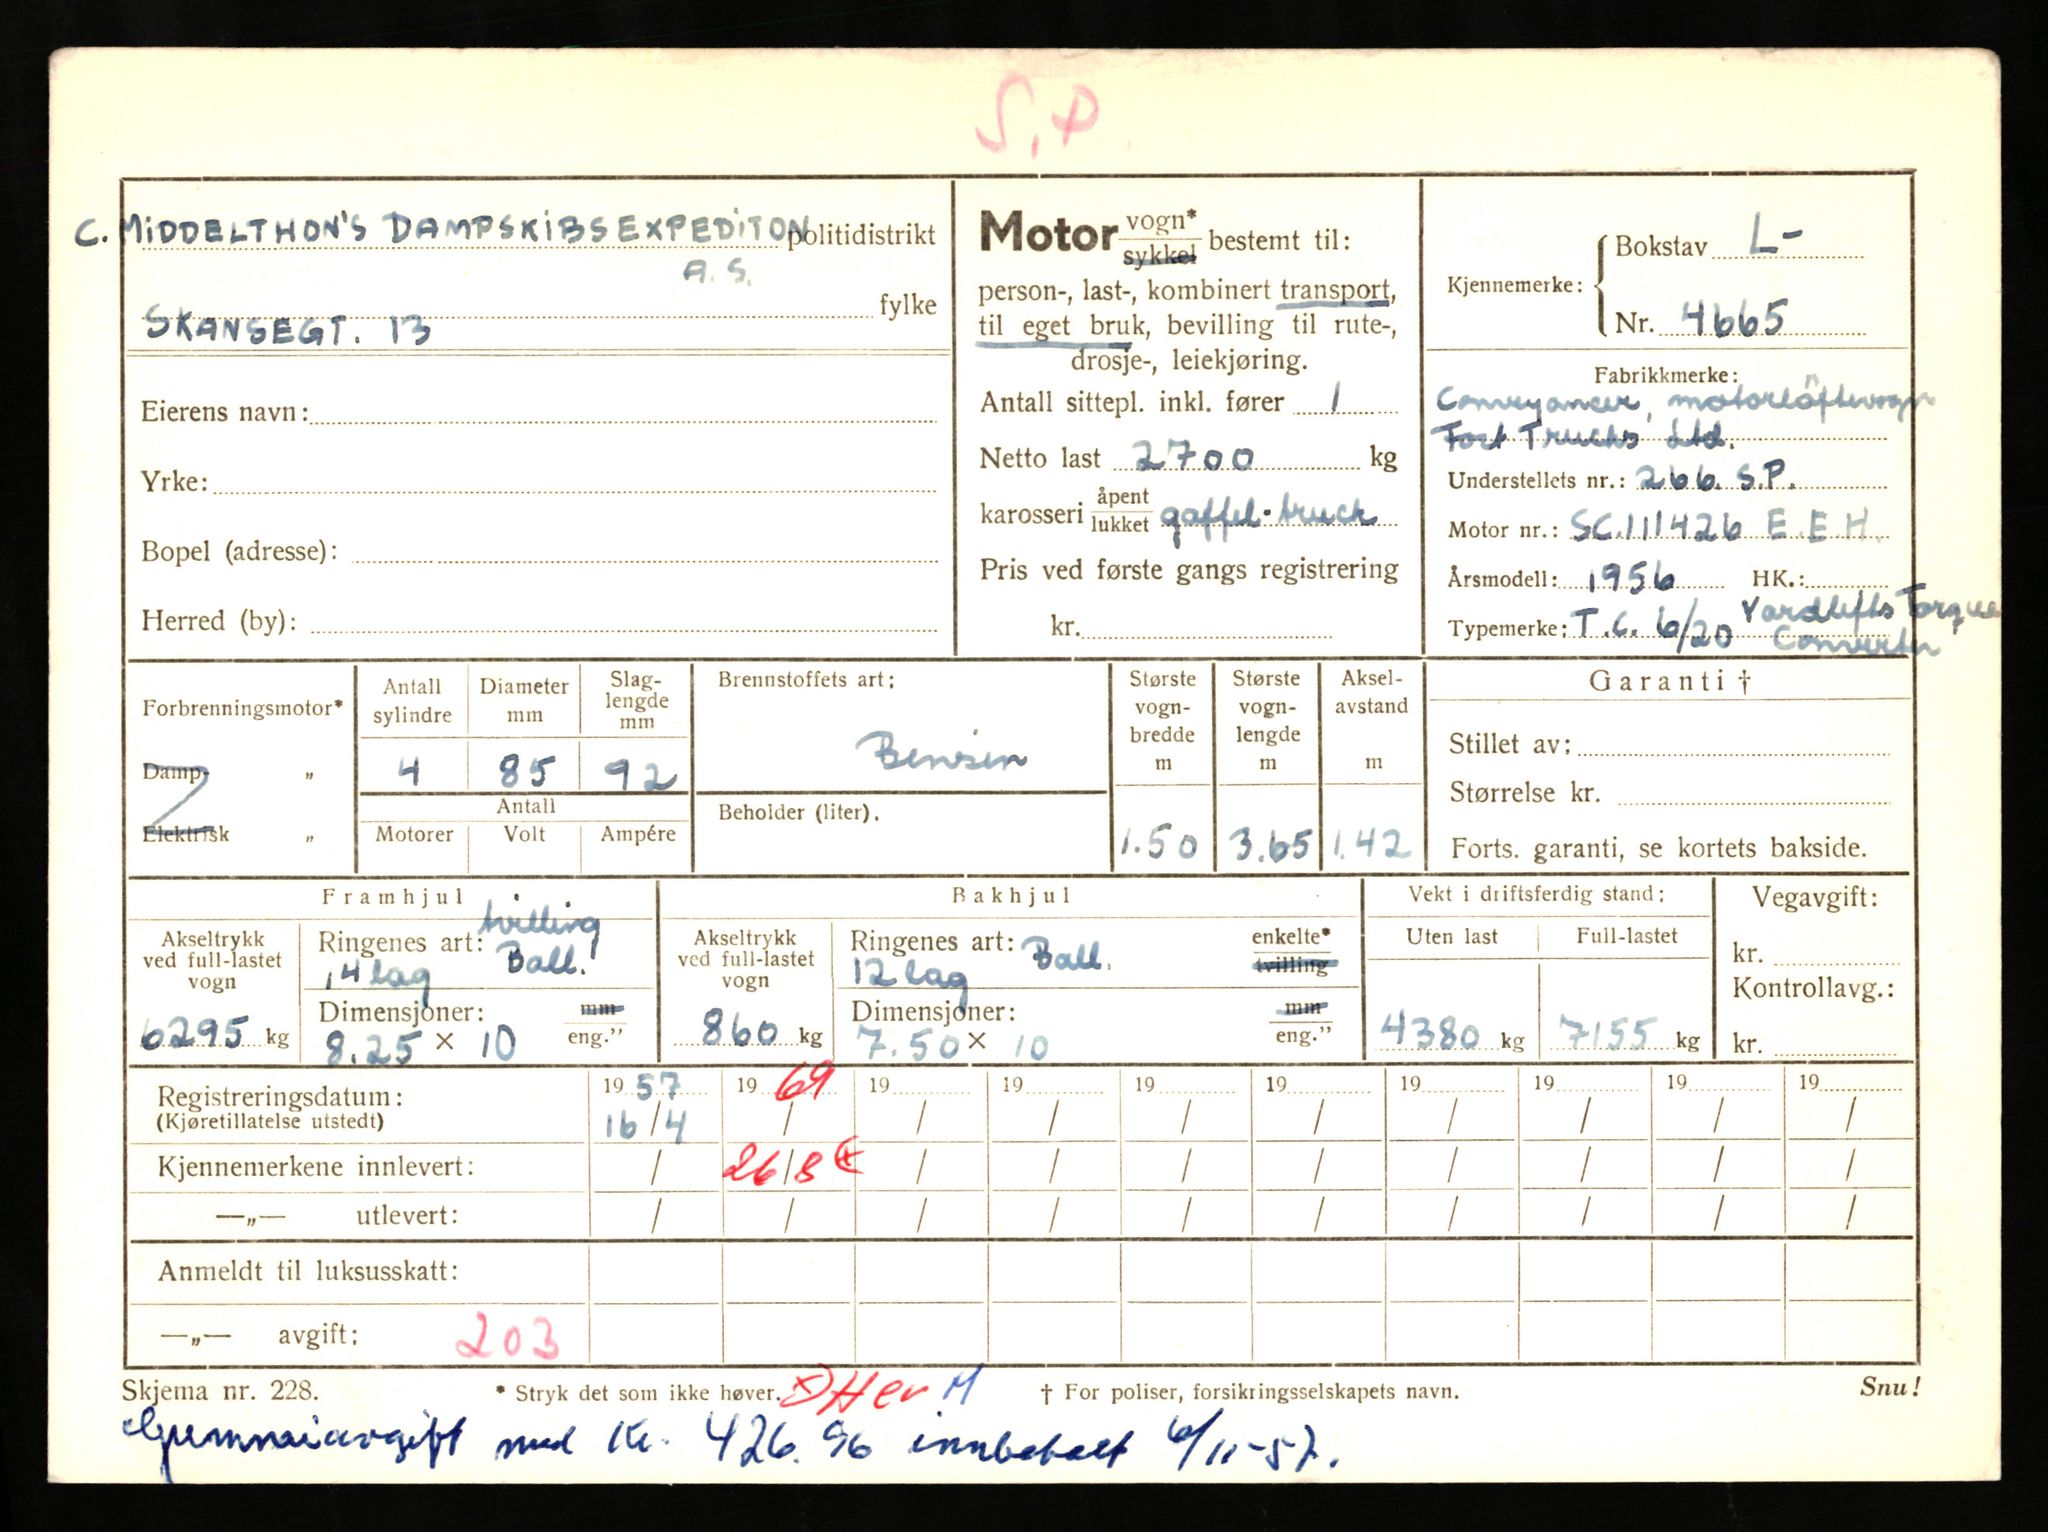 S.P.
C. MIDDELTHON'S DAMPSKIBSEXPEDITON politidistrikt
A.S.
fylke
SKANSEGT. 13
Eierens navn:
Yrke:
Bopel (adresse):
Herred (by):
Motor vogn* / sykkel bestemt til:
person-, last-, kombinert transport,
til eget bruk, bevilling til rute-,
drosje-, leiekjøring.
Antall sittepl. inkl. fører 1
Netto last 2700 kg
karosseri åpent / lukket gaffel-truck
Pris ved første gangs registrering
kr.
Kjennemerke: Bokstav L-
Nr. 4665
Fabrikkmerke:
Conveyancer, motorløftevogn
Fork Trucks Ltd.
Understellets nr.: 266. S.P.
Motor nr.: SC.111426 E.E.H.
Årsmodell: 1956 HK.:
Typemerke: T.C. 6/20 Yardlifts Torque
Converter
Forbrenningsmotor*
Damp- „
Elektrisk „
Antall sylindre
4
Diameter mm
85
Slag-lengde mm
92
Antall
Motorer Volt Ampére
Brennstoffets art:
Bensin
Beholder (liter).
Største vogn-bredde m
1.50
Største vogn-lengde m
3.65
Aksel-avstand m
1.42
Garanti †
Stillet av:
Størrelse kr.
Forts. garanti, se kortets bakside.
Framhjul
Akseltrykk ved full-lastet vogn
6295 kg
Ringenes art: tvilling
14 lag Ball.
Dimensjoner: mm
8.25 × 10 eng.”
Bakhjul
Akseltrykk ved full-lastet vogn
860 kg
Ringenes art: Ball. enkelte*
12 lag tvilling
Dimensjoner: mm
7.50 × 10 eng.”
Vekt i driftsferdig stand:
Uten last Full-lastet
4380 kg 7155 kg
Vegavgift:
kr.
Kontrollavg.:
kr.
Registreringsdatum: 1957 1969 19 19 19 19 19 19 19 19
(Kjøretillatelse utstedt) 16/4 / / / / / / / / /
Kjennemerkene innlevert: / 26/8 / / / / / / / /
—„— utlevert: / / / / / / / / / /
Anmeldt til luksusskatt:
—„— avgift: 203
Skjema nr. 228. * Stryk det som ikke høver. † For poliser, forsikringsselskapets navn. Snu!
Gummiavgift med Kr. 426.96 innbetalt 6/11-57.